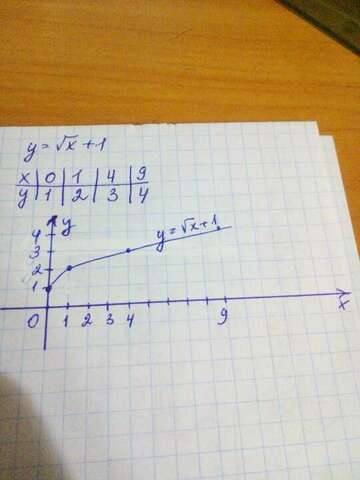 y = √x + 1
x | 0 | 1 | 4 | 9
y | 1 | 2 | 3 | 4
y
4
3
2
1
y = √x + 1
0 1 2 3 4 9 x